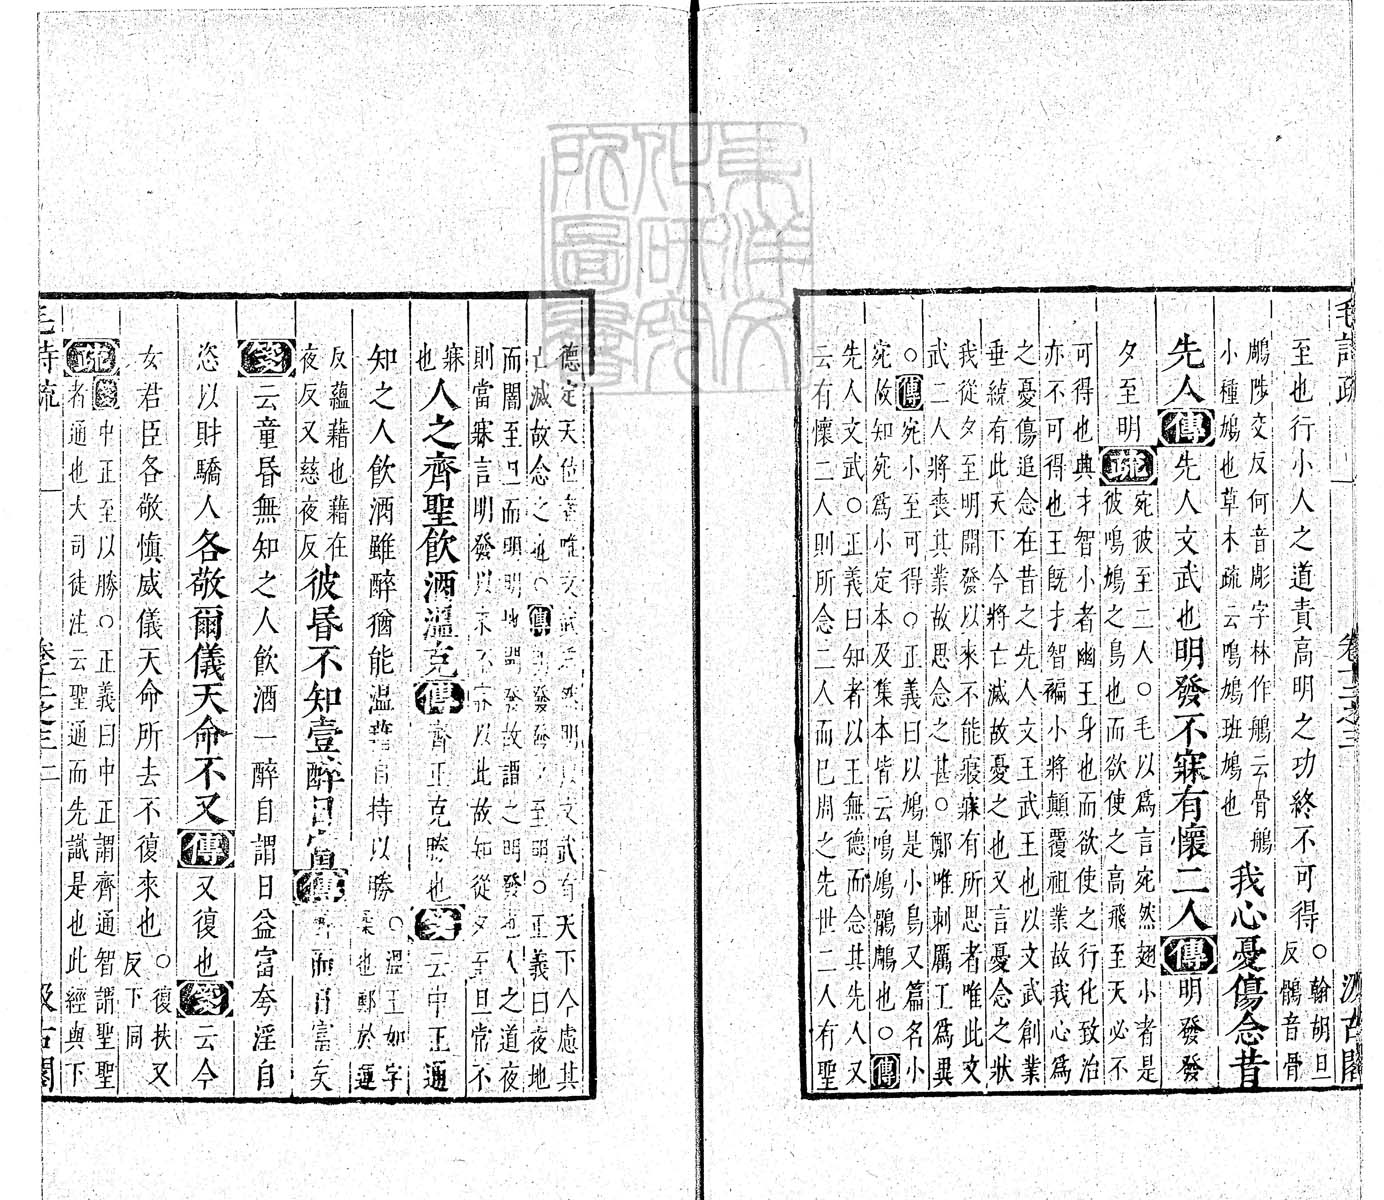 毛詩疏
卷十二之三
汲古閣
至也行小人之道責高明之功終不可得○翰胡旦反鶻音骨
鵰陟交反何音彫字林作鵃云骨鵃
小種鳩也草木疏云鳴鳩班鳩也我心憂傷念昔
先人傳先人文武也明發不寐有懷二人傳明發發
夕至明疏宛彼至二人○毛以爲言宛然翅小者是
彼鳴鳩之鳥也而欲使之高飛至天必不
可得也興才智小者幽王身也而欲使之行化致治
亦不可得也王既才智褊小將顛覆祖業故我心爲
之憂傷追念在昔之先人文王武王也以文武創業
垂統有此天下今將亡滅故憂之也又言憂念之狀
我從夕至明開發以來不能寢寐有所思者唯此文
武二人將喪其業故思念之甚○鄭唯刺厲王爲異
○傳宛小至可得○正義曰以鳩是小鳥又篇名小
宛故知宛爲小定本及集本皆云鳴鳩鶻鵰也○傳
先人文武○正義曰知者以王無德而念其先人又
云有懷二人則所念二人而已周之先世二人有聖
德定天位者唯文武
天下今慮其
亡滅故念之也○傳明發發夕至明○正義曰夜地
而闇至旦而明明地開發故謂之明發也人之道夜
則當寐言明發以來不寐以此故知從夕至旦常不
寐也人之齊聖飲酒溫克傳齊正克勝也箋云中正通
知之人飲酒雖醉猶能溫藉自持以勝○溫王如字柔也鄭於運
反蘊藉也藉在
夜反又慈夜反彼昏不知壹醉日富傳醉而日富矣
箋云童昏無知之人飲酒一醉自謂日益富夸淫自
恣以財驕人各敬爾儀天命不又傳又復也箋云今
女君臣各敬慎威儀天命所去不復來也○復扶又反下同
疏箋中正至以勝○正義曰中正謂齊通智謂聖聖
者通也大司徒注云聖通而先識是也此經與下
毛詩疏
卷十二之三
二
汲古閣
東洋文化研究所圖書